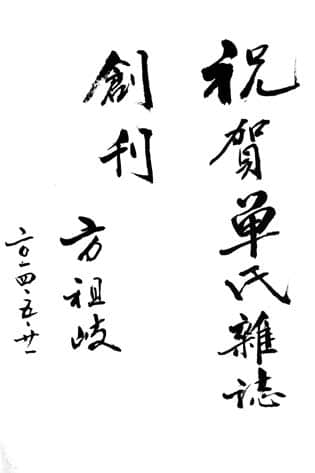 祝賀单氏雜誌
創刊
方祖岐
二〇一四·五·廿一